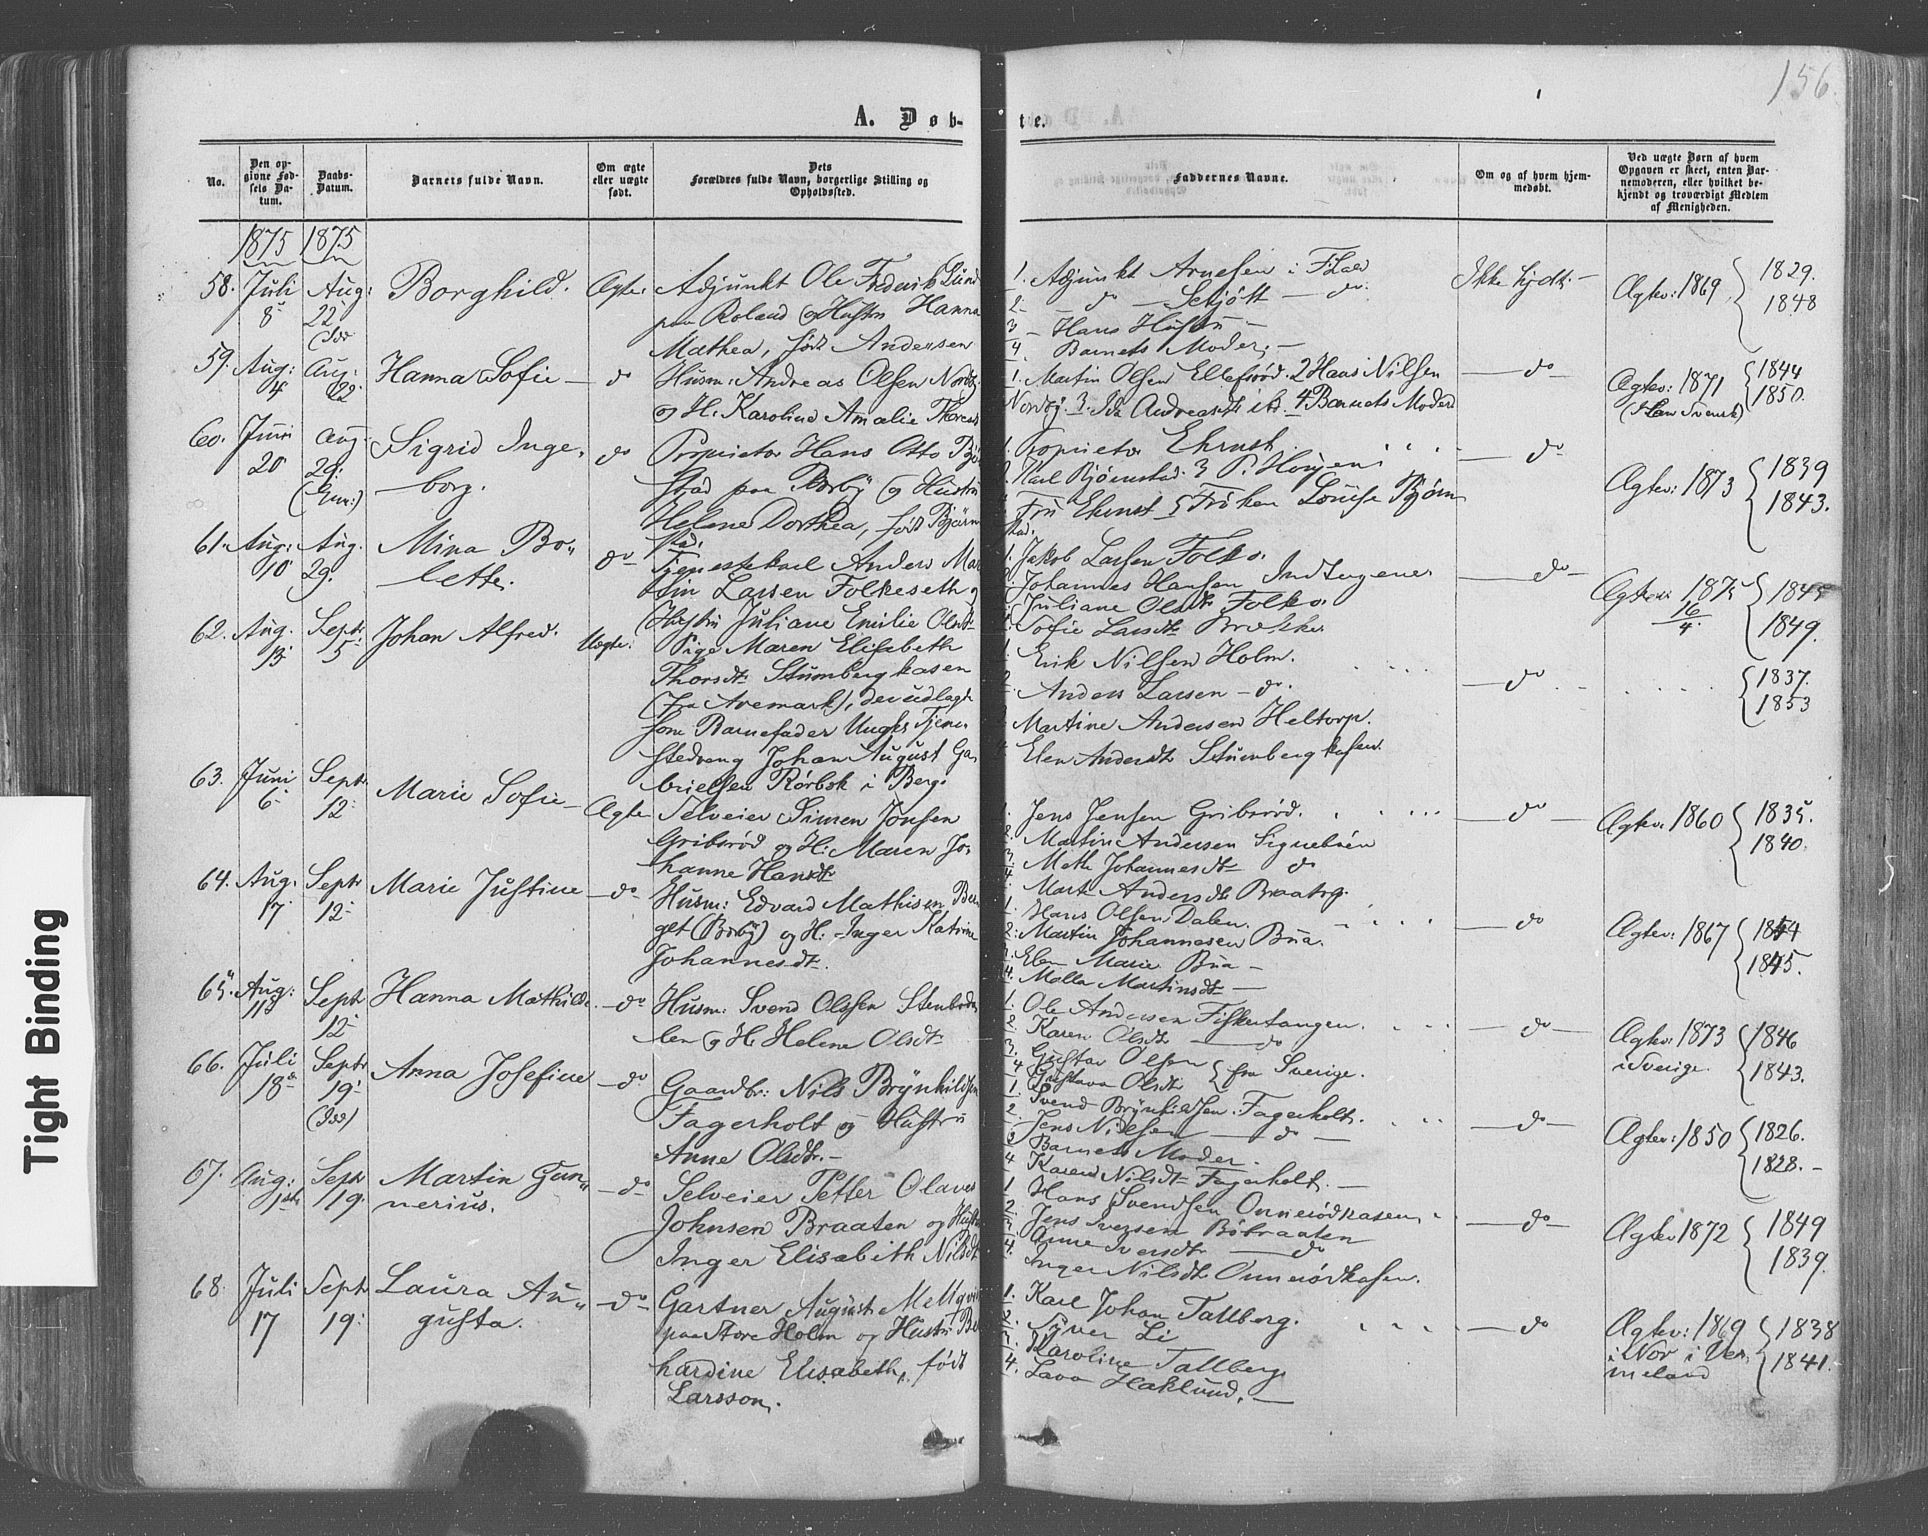 156.
A. Døb-
te.
No.
Den op-
givne Fød-
sels Da-
tum.
Daabs-
Datum.
Barnets fulde Navn.
Om ægte
eller uægte
født.
Dets
Forældres fulde Navn, borgerlige Stilling og
Opholdssted.
Faddernes Navne.
Om og af hvem hjem-
medøbt.
Ved uægte Børn af hvem
Opgaven er skeet, enten Bar-
nemoderen, eller hvilket be-
kjendt og troværdigt Medlem
af Menigheden.
1875 1875
58. Juli 8 Aug: 22 (Idd Borghild. Ægte.
Adjunkt Ole Frederik Lund
paa Roland og Hustru Hanna
Mathea, født Andersen
1. Adjunkt Arnesen i Fhald
2 — do — Schjött — do.
3 — Hans Hustru —
4. Barnets Moder. —
Ikke hjdbt. —
Ægtev: 1869 { 1829.
1848
59. Aug: 4 Aug: 22 Hanna Sofie — do
Husm: Andreas Olsen Nordby
og H. Karoline Amalie Thores
1. Martin Olsen Ellefsrød. 2 Hans Nilsen
Nordby. 3. Ida Andreasdt. ibd. 4 Barnets Moder
— do —
Ægtev: 1871 { 1844
(I Law Svensk) 1850.
60. Juni 20 Aug. 29. (Enn.) Sigrid Inge-
borg. do
Proprietær Hans Otto Bjørn
stad paa Borby og Hustru
Helene Dorthea, født Bjørn
stad.
1. Proprietær Ehrnst
2. Karl Bjørnstad. 3 P. Hougen
4 Fru Ehrnst 5 Frøken Louise Bjørn
stad.
— do —
Ægtev: 1873 { 1839
1843.
61. Aug: 10 Aug. 29. Mina Bo-
lette. do
Tjenestekarl Anders Mar
tin Larsen Folkeseth og
Hustru Juliane Emilie Olsdt
1. Jakob Larsen Folks.
Johannes Hansen Indtagene
Juliane Olsdt Folks.
Sofie Larsdt Brække
— do —
Ægtev: 1875 16/4 { 1845
1849.
62. Aug. 13 Sept: 5 Johan Alfred. Uægte.
Pige Maren Elisabeth
Thorsdt. Stumbergkasen
(fra Aremark), der udlagde
som Barnefader Ungk. Tjene
stedreng Johan August Ga
brielsen Rørbæk i Berg.
1. Erik Nilsen Holm.
2. Anders Larsen — do.
3 Martine Andersen Heltorp.
4 Elen Andersdt Stumbergkasen.
— do
{ 1837.
1853
63. Juni 6 Sept. 12 Marie Sofie — Ægte
Selveier Simen Jonsen
Gribsrød og H: Maren Jo
hanne Hansdt
1. Jens Jensen Gribsrød.
2. Martin Andersen Signebøen
3. Mathe Johannesdt do
4. Marte Andersdt Braatorp.
— do —
Ægtev. 1860 { 1835.
1840.
64. Aug. 17 Sept 12 Marie Justine — do
Husm: Edvard Mathisen Ber
get (Borby) og H: Inger Katrine
Johannesdt.
1. Hans Olsen Dalen.
2. Martin Johannesen Bua.
3. Elen Marie Bua —
4. Malla Martinsdt —
— do
Ægtev: 1867 { 1844
1845.
65. Aug: 13 Sept 12 Hanna Mathilde — do
Husm: Svend Olsen Stenboda
len og H. Helene Olsdt.
1. Ole Andersen Fiskertangen.
2. Karen Olsdt — do
3. Gustav Olsen
4 Gustava Olsdt } fra Sverige.
— do —
Ægtev: 1873 { 1846
i Sverige. 1843.
66. Juli 18 Sept 19 (Idd) Anna Josefine — do
Gaardbr: Nils Brynhildsen
Fagerholt og Hustru
Anne Olsdtr. —
1. Svend Brynhildsen Fagerholt.
2. Jens Nilsen — do —
3 Barnets Moder.
4 Karen Nilsdt Fagerholt. —
— do —
Ægtev: 1850 { 1826.
1828. —
67. Aug: 1ste Sept 19. Martin Gun-
nerius. — do
Selveier Petter Olaves
Johnsen Braaten og Hustru
Inger Elisabeth Nilsdt
1 Hans Svendsen Onnerødkasen,
2. Jens Iversen Böbraaten
3. Anne Iversdt — do
4. Inger Nilsdt Onnerødkasen.
— do —
Ægtev 1872 { 1849
1839.
68. Juli 17 Sept 19: Laura Au-
gusta. — do
Gartner August Mellqvi
paa Store Holm og Hustru Be
hardine Elisabeth, født
Larsson.
1. Karl Johan Tallberg.
2. Syver Li
3. Karoline Tallberg
4. Lava Haklund. —
— do
Ægtev: 1869 { 1838
i Nor i Ver- 1841.
meland
Tight Binding